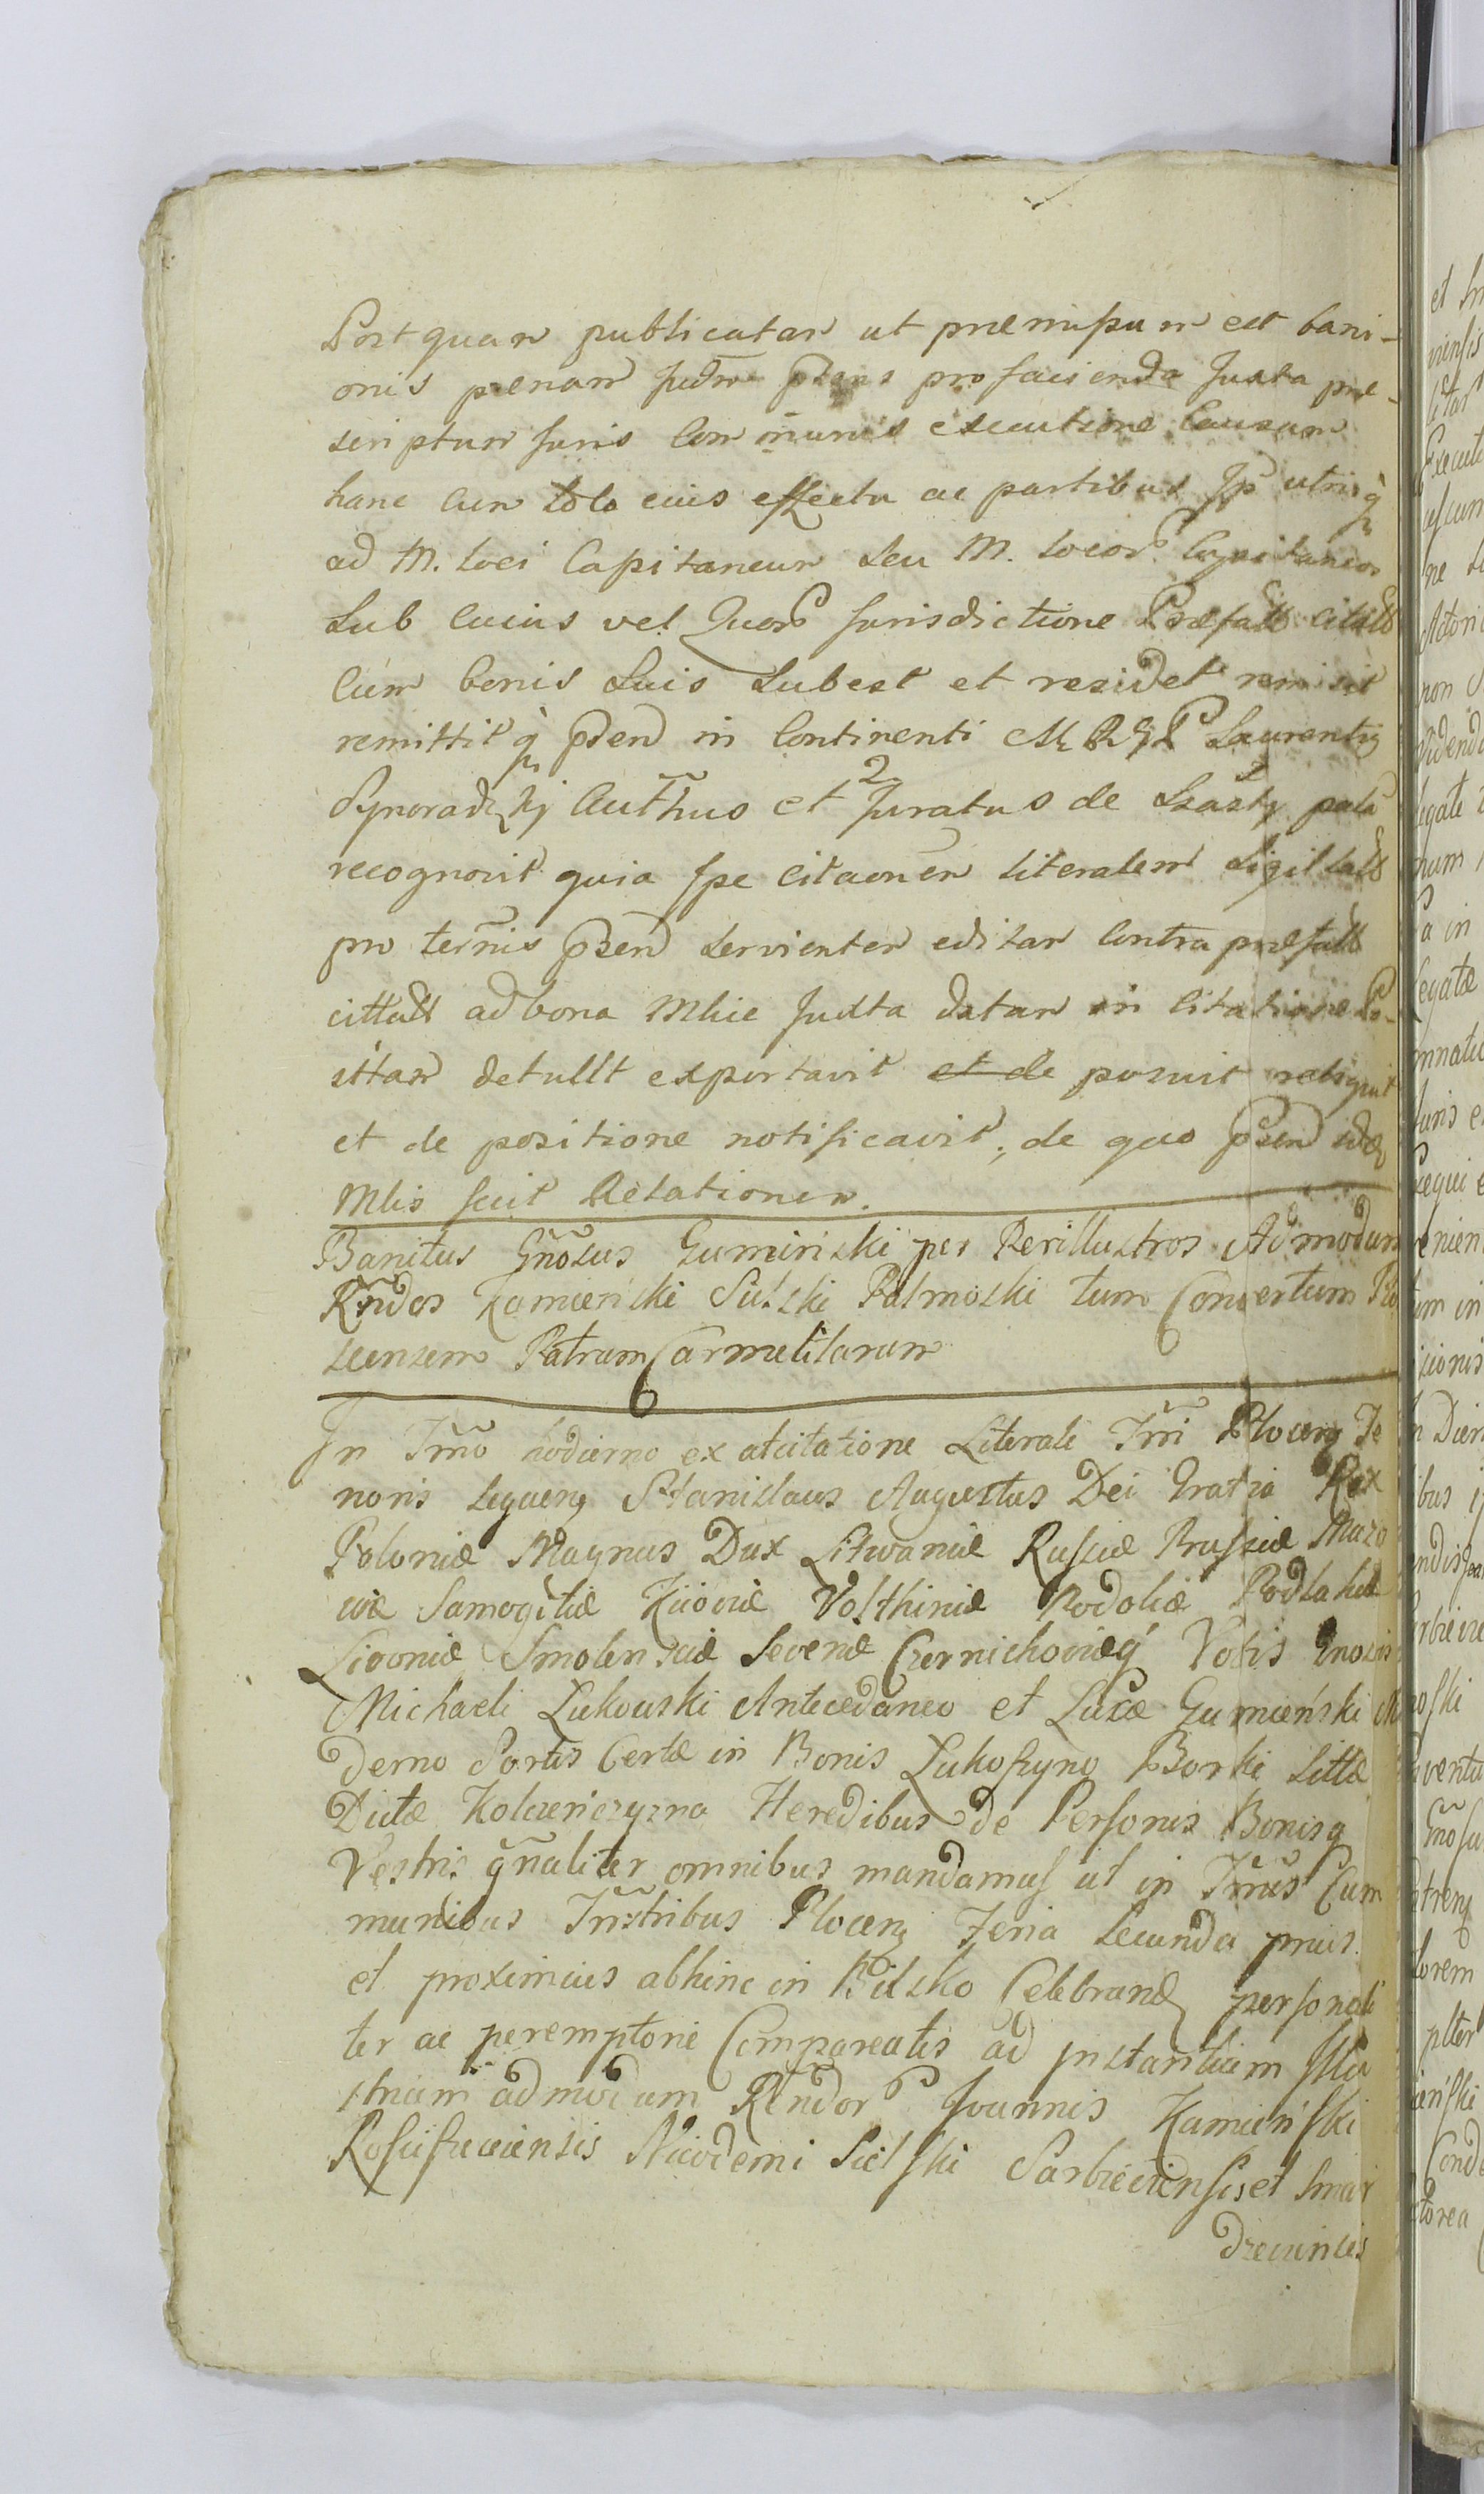 Post quam publicatam ut præmissum est bani-
onis pænam Judm præns pro facienda Juxta præ-
scriptum Juris Com munis executione Causam
hanc cum toto eius effectu ac partibus Jp utrisq
ad M. loci Capitaneum seu M. locor Capitaneos
sub cuius vel Quor Jurisdictione Præfatt citatt
cum bonis suis subest et residet remisit
remittit q præsen in Continenti
Aut̃hus et Juratus de
recognovit quia Ipe citaonem literalem sigillatt
pro terñis præsen servientem editam contra præfatt
cittatt ad bona Mlice Juxta datam in Citatione Po-
sitam detulit exportavit et de posuit reliquit
et de positione notificavit, de quo præsen idem
Mlis fecit Relationem.
Banitus Gñosus Guminski per Perillustros Admodum
Rñdos Kamieński Sielski Palmoski tum Conventum Plo
scensem Patrum Carmelitarum
In Tmo hodierno ex atcitatione Literali Tm̃i Plocen Te
noris seguen Stanislaus Augustus Dei Gratia Rex
Poloniæ Magnus Dux Litwaniæ Russiæ Prussiæ Mazo
wiæ Samogitiæ Kiioviæ Volhiniæ Podoliæ Podlahiæ
Livoniæ Smolensciæ Seveniæ Czernichoviæq Vobis Gnosis
Michaeli Lukowski Antecedaneo et Lucæ Gumieński Mo
derno Partis Certæ in Bonis Lukoszyno Borki sittæ
Dictæ Kolczeniczyzna Heredibus de Personis Bonisq
Vestris gñaliter omnibus mandamus ut in Tm̃is Cum
munibus Trrstribus Plocen Feria Secunda prius
et proximius abhinc in Bilsko Celebrand personali
ter ac peremptorie Compareatis ad Instantiam Illu
strium admodum Rendor Joannis Kamieński
Rosciszeviensis Nicodemi Sielski Sarbieviensis et Smar
dzevinsis